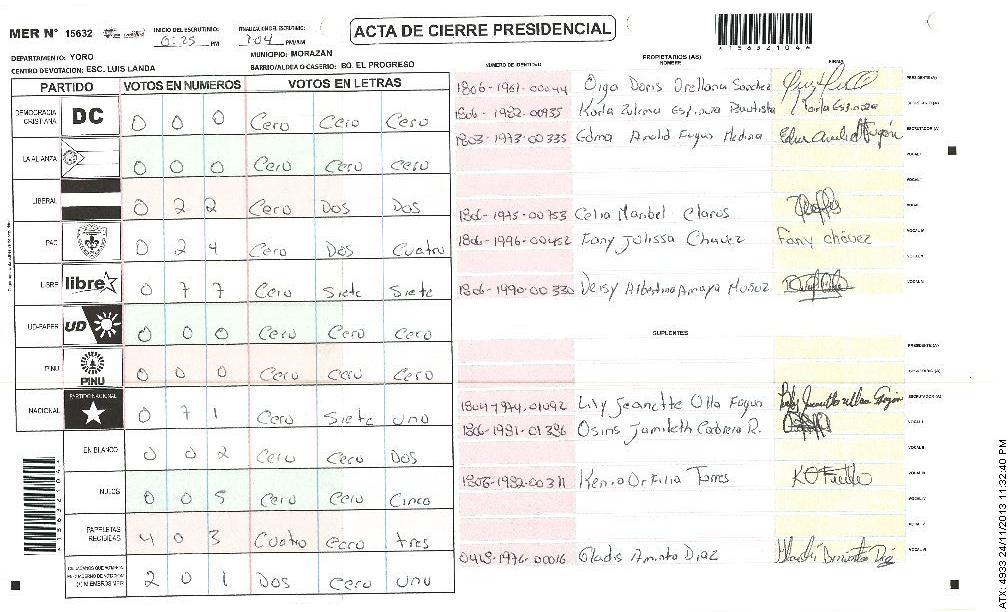 ACTA DE CIERRE PRESIDENCIAL
MER N° 15632
INICIO DEL ESCRUTINIO: 0:25 PM
FINALIZACION DEL ESCRUTINIO: 7:04 PM/AM
* 1 5 6 3 2 1 0 4 *
DEPARTAMENTO: YORO
MUNICIPIO: MORAZAN
CENTRO DEVOTACION: ESC. LUIS LANDA
BARRIO/ALDEA O CASERIO: BO. EL PROGRESO
PARTIDO VOTOS EN NUMEROS VOTOS EN LETRAS
DEMOCRACIA CRISTIANA DC 0 0 0 Cero Cero Cero
LA ALIANZA 0 0 0 Cero Cero Cero
LIBERAL 0 2 2 Cero Dos Dos
PAC 0 2 4 Cero Dos Cuatro
LIBRE libre 0 7 7 Cero Siete Siete
UD-FAPER UD 0 0 0 Cero Cero Cero
PINU PINU 0 0 0 Cero Cero Cero
NACIONAL PARTIDO NACIONAL 0 7 1 Cero Siete uno
EN BLANCO 0 0 2 Cero Cero Dos
NULOS 0 0 5 Cero Cero Cinco
PAPELETAS RECIBIDAS 4 0 3 Cuatro cero tres
2 0 1 Dos cero uno
NÚMERO DE IDENTIDAD PROPIETARIOS (AS) NOMBRE FIRMA
1806-1961-00044 Olga Doris Orellana Sanchez PRESIDENTE(A)
1806-1982-00935 Karla Zulema Espinoza Bautista Karla Espinoza SECRETARIO(A)
1803-1973-00335 Edma Arnold Fugon Medina ESCRUTADOR (A)
VOCAL I
VOCAL II
1806-1975-00753 Celia Maribel Claros
1806-1996-00452 Fany Julissa Chavez Fany chávez
1806-1990-00330 Deisy Albertina Amaya Muñoz
SUPLENTES
PRESIDENTE(A)
SECRETARIO (A)
1804-1974-01092 Lily Jeanette Ulla Fugon ESCRUTADOR (A)
1806-1981-01386 Osiris Jamileth Cabrera R. VOCAL I
VOCAL II
1806-1982-00311 Kenia Orfilia Torres VOCAL III
VOCAL IV
VOCAL V
0413-1976-00016 Gladis Aminta Diaz VOCAL VI
ATX: 4933 24/11/2013 11:32:40 PM